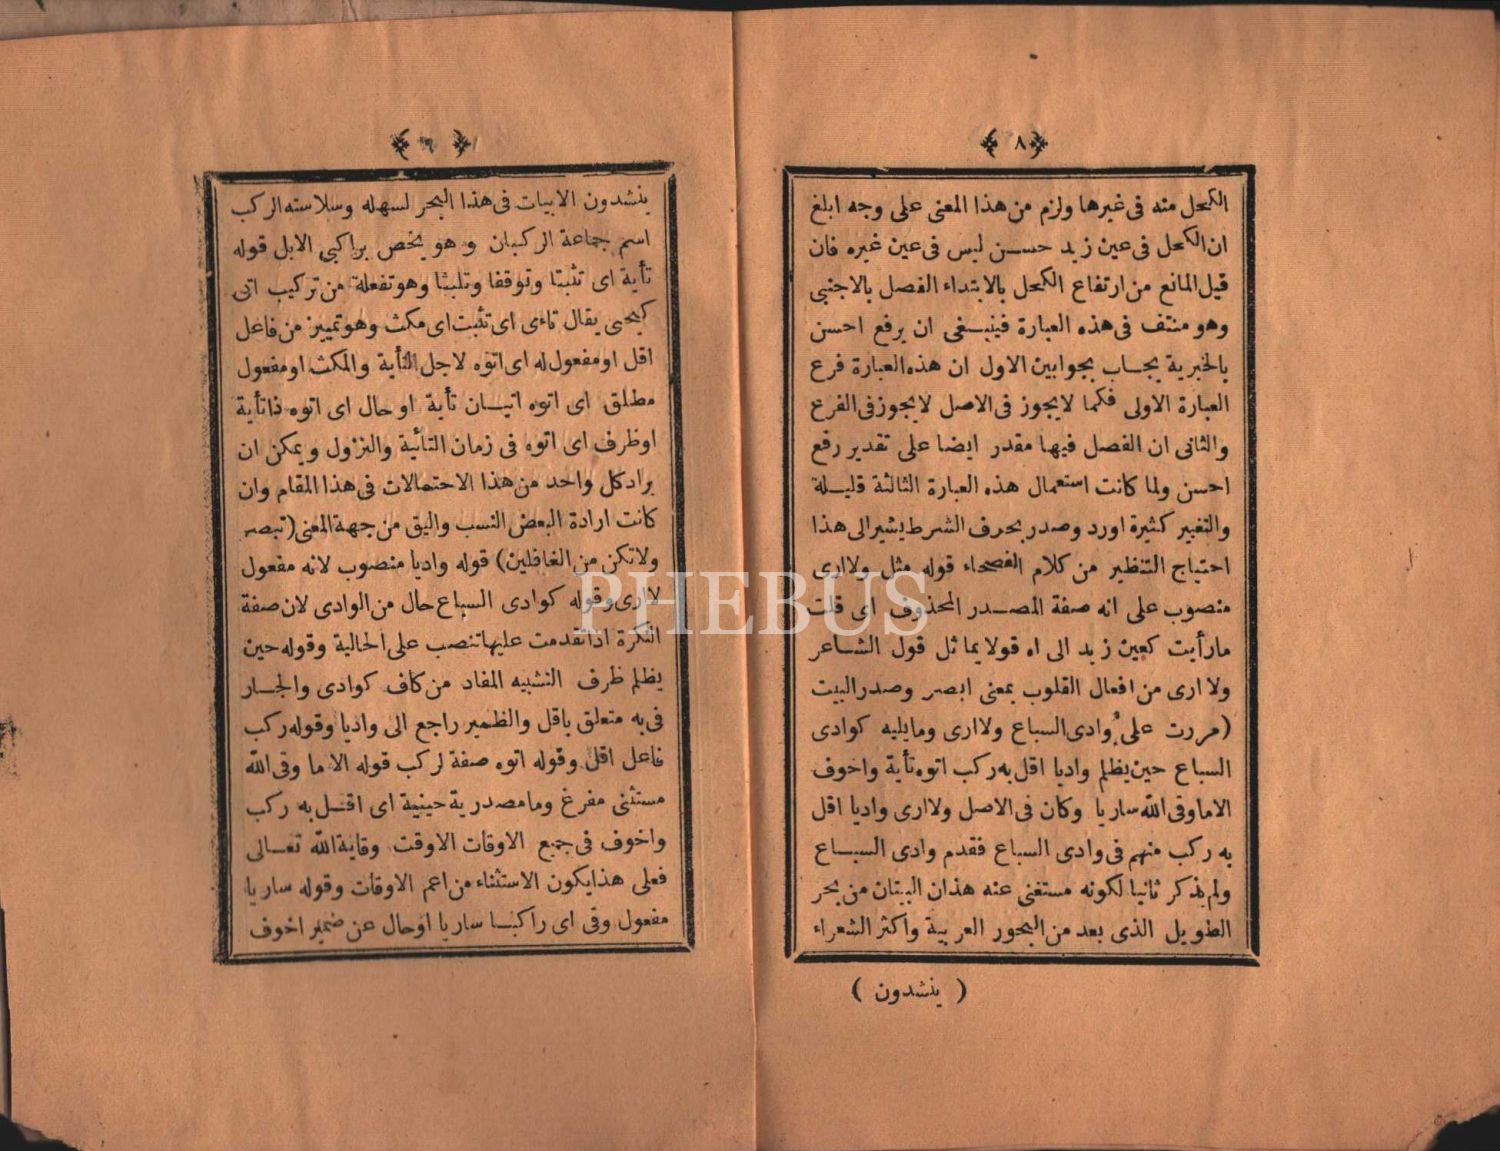 ﴿ ٨ ﴾
الكحل منه فى غيرها ولزم من هذا المعنى على وجه ابلغ
ان الكحل فى عين زيد حسن ليس فى عين غيره فان
قيل المانع من ارتفاع الكحل بالابتداء الفصل بالاجنبى
وهو منتف فى هذه العبارة فينبغى ان يرفع احسن
بالخبرية يجاب بجوابين الاول ان هذه العبارة فرع
العبارة الاولى فكما لايجوز فى الاصل لايجوز فى الفرع
والثانى ان الفصل فيها مقدر ايضا على تقدير رفع
احسن ولما كانت استعمال هذه العبارة الثالثة قليلة
والتغيير كثيرة اورد وصدر بحرف الشرط يشير الى هذا
احتياج التنظير من كلام الفصحاء قوله مثل ولاارى
منصوب على انه صفة المصدر المحذوف اى قلت
مارأيت كعين زيد الى اه قولا يماثل قول الشاعر
ولا ارى من افعال القلوب بمعنى ابصر وصدر البيت
(مررت على وادى السباع ولاارى ومايليه كوادى
السباع حين يظلم واديا اقل به ركب اتوه تأية واخوف
الاماوقى الله ساريا وكان فى الاصل ولاارى واديا اقل
به ركب منهم فى وادى السباع فقدم وادى السباع
ولم يذكر ثانيا لكونه مستغنى عنه هذان البيتان من بحر
الطويل الذى يعد من البحور العربية واكثر الشعراء
( ينشدون )
﴿ ٩ ﴾
ينشدون الابيات فى هذا البحر لسهله وسلاسته الركب
اسم جماعة الركبان وهو يخص براكبى الابل قوله
تأية اى تثبتا وتوقفا وتلبثا وهو تفعلة من تركيب اتى
كيحيى يقال تاءى اى تثبت اى مكث وهو تمييز من فاعل
اقل اومفعول له اى اتوه لاجل التأية والمكث اومفعول
مطلق اى اتوه اتيان تأية اوحال اى اتوه ذاتأية
اوظرف اى اتوه فى زمان التائية والنزول ويمكن ان
يراد كل واحد من هذا الاحتمالات فى هذا المقام وان
كانت ارادة البعض النسب واليق من جهة المعنى (تبصر
ولاتكن من الغافلين) قوله واديا منصوب لانه مفعول
لاارى وقوله كوادى السباع حال من الوادى لان صفة
النكرة اذا تقدمت عليها تنصب على الحالية وقوله حين
يظلم ظرف التشبيه المفاد من كاف كوادى والجار
فى به متعلق باقل والظمير راجع الى واديا وقوله ركب
فاعل اقل وقوله اتوه صفة لركب قوله الا ما وقى الله
مستثنى مفرغ وما مصدرية حينية اى اقل به ركب
واخوف فى جميع الاوقات الاوقت وقاية الله تعالى
فعلى هذا يكون الاستثناء من اعم الاوقات وقوله ساريا
مفعول وقى اى راكبا ساريا اوحال عن ضمير اخوف
PHEBUS